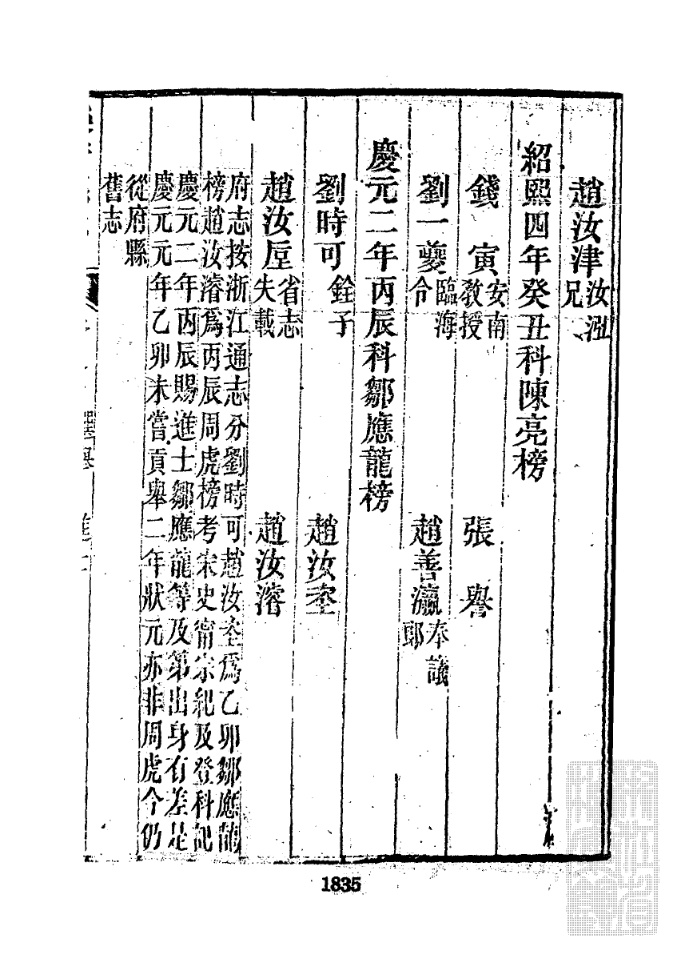 趙汝津汝泓兄
紹熙四年癸丑科陳亮榜
錢寅安南教授 張譽
劉一夔臨海令 趙善瀛奉議郎
慶元二年丙辰科鄒應龍榜
劉時可銓子 趙汝坴
趙汝垕省志失載 趙汝濬
府志按浙江通志分劉時可趙汝坴爲乙卯鄒應龍
榜趙汝濬爲丙辰周虎榜考宋史甯宗紀及登科記
慶元二年丙辰賜進士鄒應龍等及第出身有差是
慶元元年乙卯未嘗貢舉二年狀元亦非周虎今仍
從府縣
舊志
選舉
1835